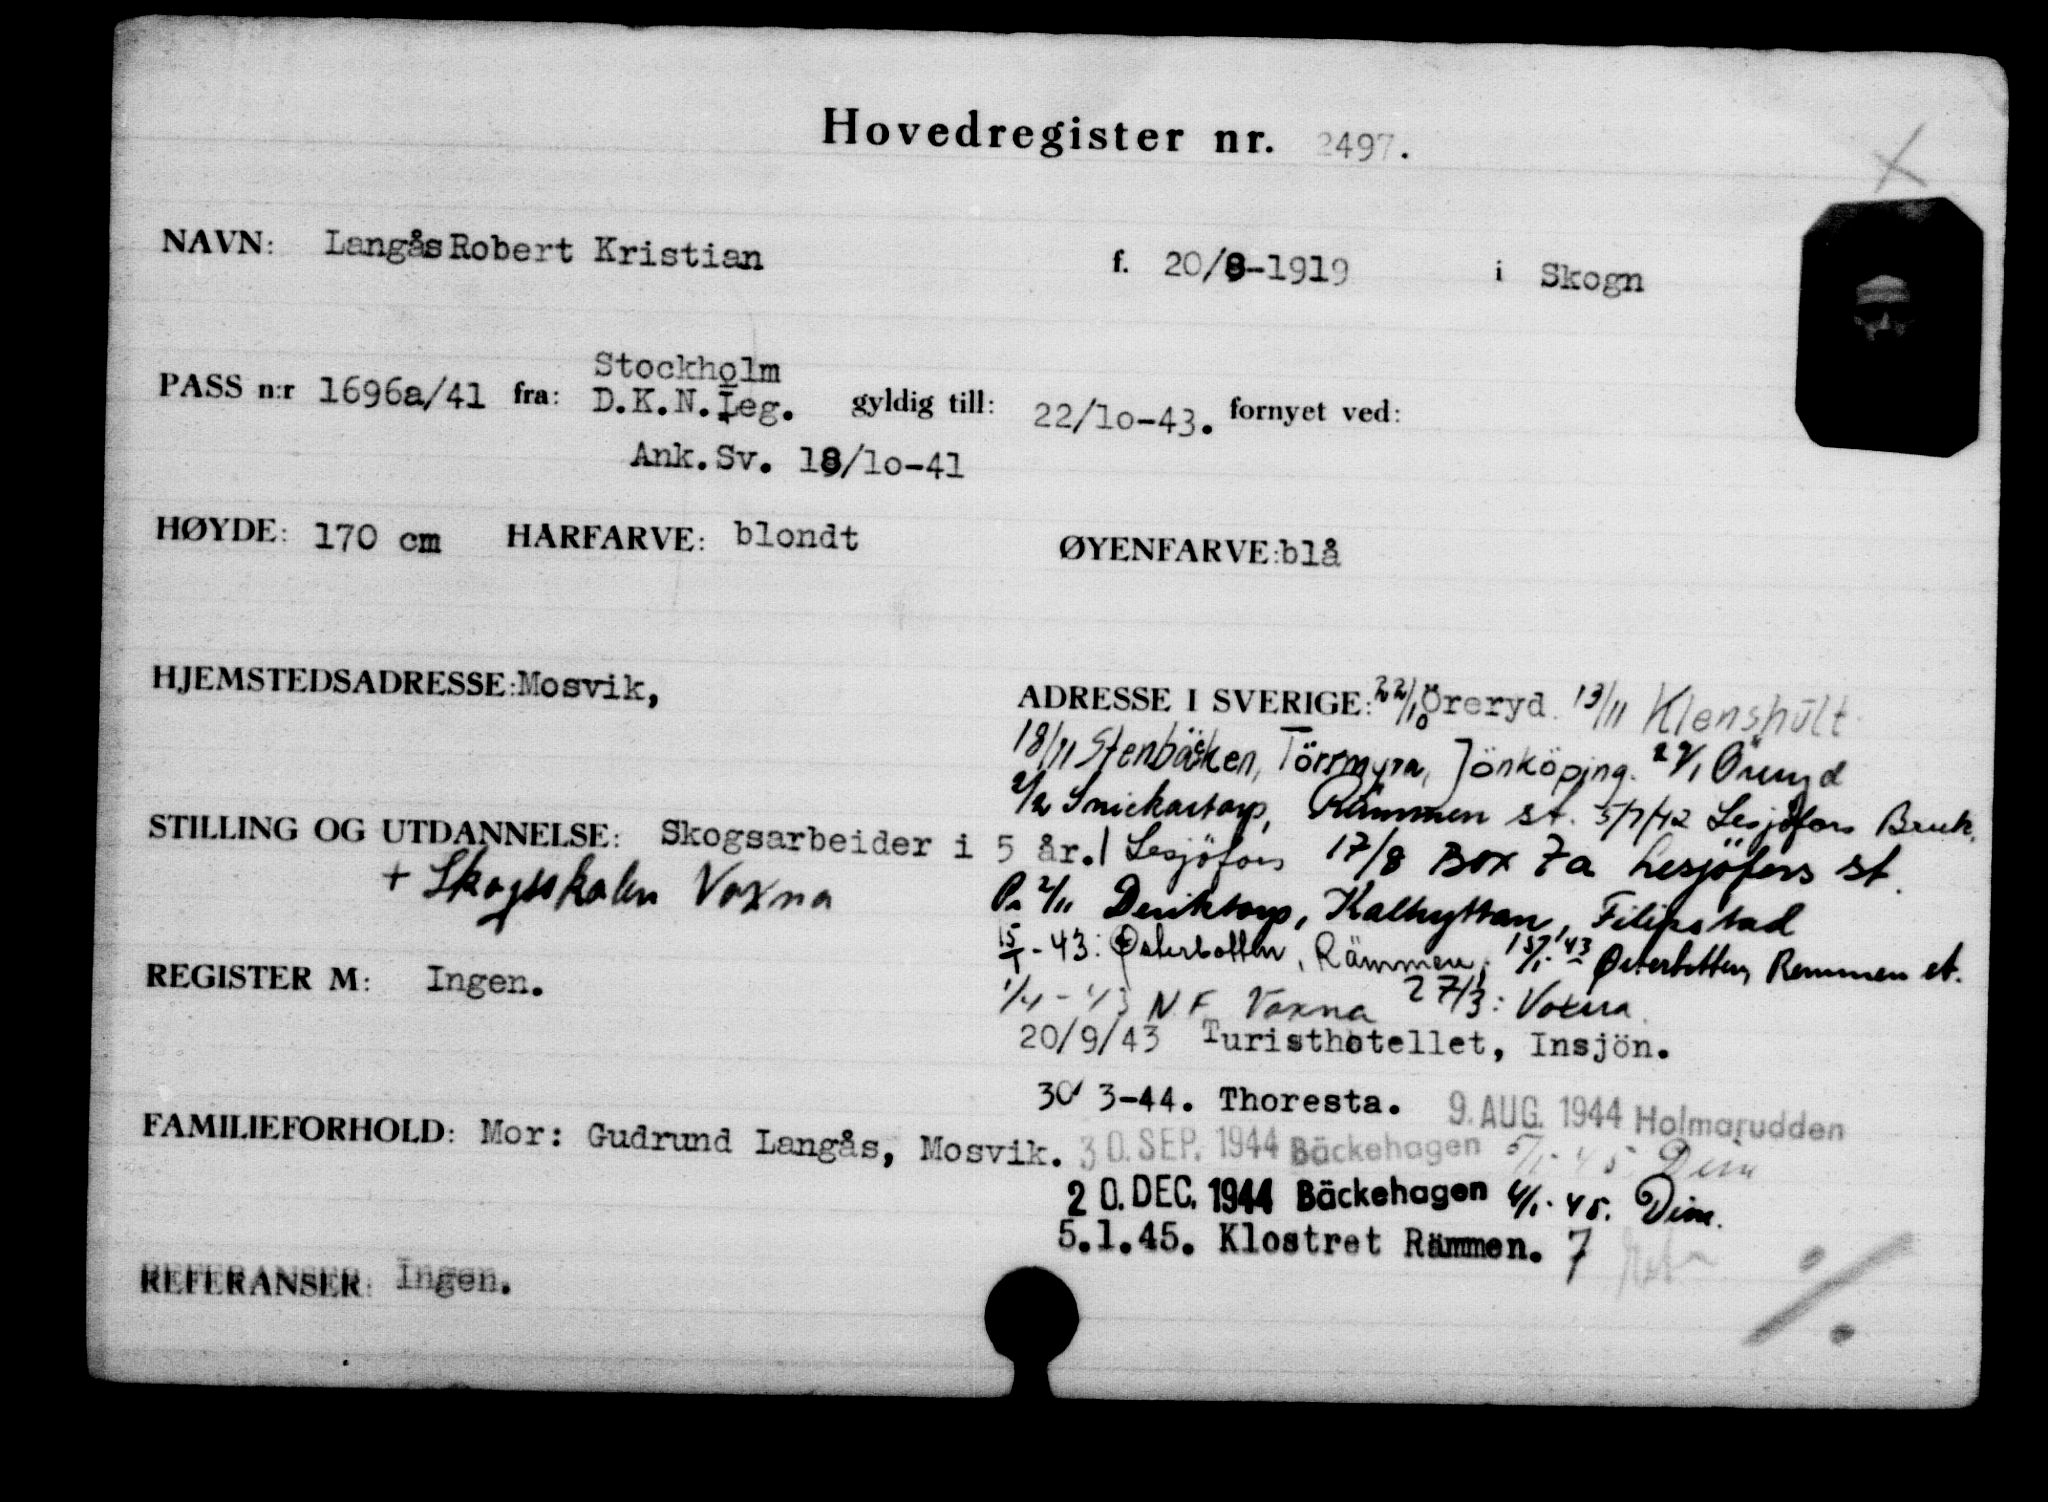 Hovedregister nr. 2497.
NAVN: Langås Robert Kristian f. 20/8-1919 i Skogn
Stockholm
PASS n:r 1696a/41 fra: D.K.N.Leg. gyldig till: 22/1o-43. fornyet ved:
Ank.Sv. 18/1o-41
HØYDE: 170 cm HARFARVE: blondt ØYENFARVE: blå
HJEMSTEDSADRESSE: Mosvik,
ADRESSE I SVERIGE: 22/10 Öreryd. 13/11 Klenshult
18/11 Stenbäcken, Törsmyra, Jönköping. Öreryd
2/2 Snickartorp, Rämmen st. 5/7/42 Lesjöfors Bruk,
STILLING OG UTDANNELSE: Skogsarbeider i 5 år.
Lesjöfors 17/8 Box 7a Lesjöfors st.
+ Skogsskolen Voxna
2/11 Deriktorp, Kalhyttan, Filipstad
15/1-43: Østerbotten, Rämmen, 15/1-43 Østerbotten, Remmen st.
REGISTER M: Ingen.
1/4-43 N F Voxna 27/3: Voxna
20/9/43 Turisthotellet, Insjön.
30/3-44. Thoresta. 9. AUG. 1944 Holmarudden
FAMILIEFORHOLD: Mor: Gudrund Langås, Mosvik.
30. SEP. 1944 Bäckehagen 5/1-45 Dim
20. DEC. 1944 Bäckehagen 4/1-45. Dim.
5.1.45. Klostret Rämmen. 7
REFERANSER: Ingen.